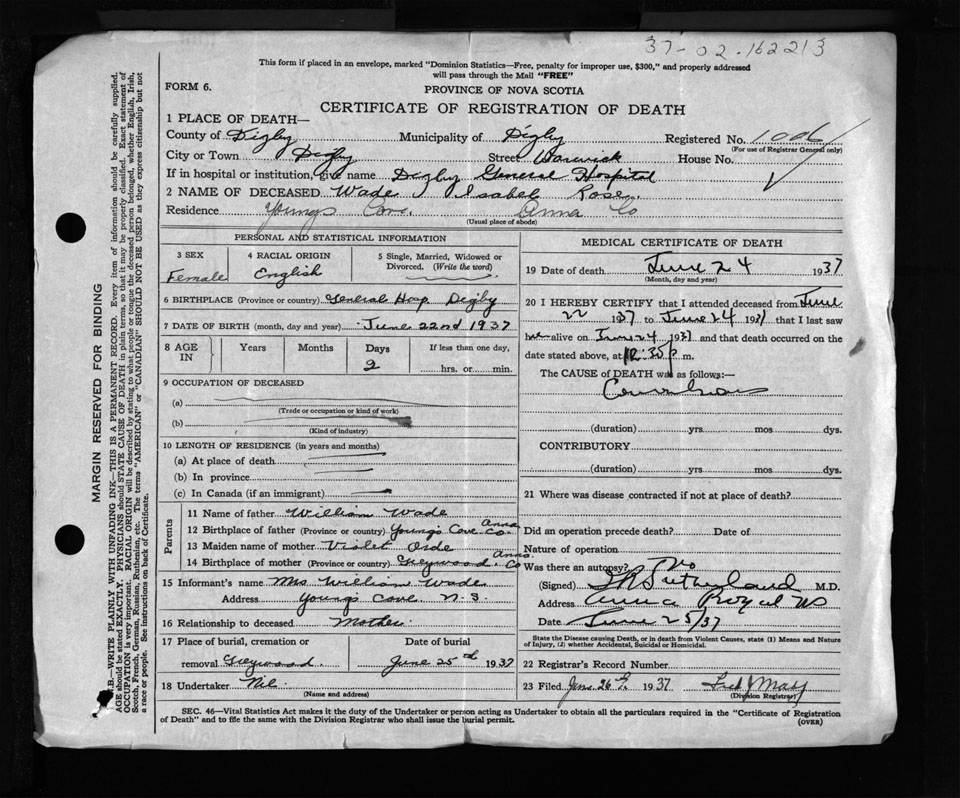 37-02-162213
This form if placed in an envelope, marked "Dominion Statistics—Free, penalty for improper use, $300," and properly addressed
will pass through the Mail "FREE"
FORM 6.
PROVINCE OF NOVA SCOTIA
CERTIFICATE OF REGISTRATION OF DEATH
1 PLACE OF DEATH—
County of Digby Municipality of Digby Registered No. 1006
(For use of Registrar General only)
City or Town Digby Street Warwick House No.
If in hospital or institution, give name Digby General Hospital
2 NAME OF DECEASED Wade Isabel Rose
Residence Youngs Cove. Anna Co
(Usual place of abode)
PERSONAL AND STATISTICAL INFORMATION
3 SEX 4 RACIAL ORIGIN 5 Single, Married, Widowed or
Divorced. (Write the word)
Female English
6 BIRTHPLACE (Province or country) General Hosp Digby
7 DATE OF BIRTH (month, day and year) June 22nd 1937
8 AGE IN Years Months Days If less than one day,
2 hrs. or min.
9 OCCUPATION OF DECEASED
(a)
(Trade or occupation or kind of work)
(b)
(Kind of industry)
10 LENGTH OF RESIDENCE (in years and months)
(a) At place of death
(b) In province
(c) In Canada (if an immigrant)
Parents
11 Name of father William Wade
12 Birthplace of father (Province or country) Young's Cove Anna Co.
13 Maiden name of mother Violet
14 Birthplace of mother (Province or country) Greywood. Anna. Co
15 Informant's name Mrs William Wade
Address Young's Cove N.S.
16 Relationship to deceased Mother.
17 Place of burial, cremation or Date of burial
removal Greywood. June 25th 1937
18 Undertaker Nil.
(Name and address)
MEDICAL CERTIFICATE OF DEATH
19 Date of death June 24 1937
(Month, day and year)
20 I HEREBY CERTIFY that I attended deceased from June
22 1937 to June 24 1937 that I last saw
her alive on June 24 1937 and that death occurred on the
date stated above, at m.
The CAUSE of DEATH was as follows:—
Convulsions
(duration) yrs mos dys.
CONTRIBUTORY
(duration) yrs mos dys.
21 Where was disease contracted if not at place of death?
Did an operation precede death? Date of
Nature of operation
Was there an autopsy? No
(Signed) Sutherland M.D.
Address Anna Royal NS
Date June 25/37
State the Disease causing Death, or in death from Violent Causes, state (1) Means and Nature
of Injury, (2) whether Accidental, Suicidal or Homicidal.
22 Registrar's Record Number
23 Filed June 26th. 1937 Fred J May
(Division Registrar)
SEC. 46—Vital Statistics Act makes it the duty of the Undertaker or person acting as Undertaker to obtain all the particulars required in the "Certificate of Registration
of Death" and to file the same with the Division Registrar who shall issue the burial permit.
(OVER)
MARGIN RESERVED FOR BINDING
N.B.—WRITE PLAINLY WITH UNFADING INK—THIS IS A PERMANENT RECORD. Every item of information should be carefully supplied.
AGE should be stated EXACTLY. PHYSICIANS should STATE CAUSE OF DEATH in plain terms, so that it may be properly classified. Exact statement of
OCCUPATION is very important. RACIAL ORIGIN will be described by stating to what people or tongue the deceased person belonged, whether English, Irish,
Scotch, French, German, Russian, Ruthenian, etc. The terms "AMERICAN" or "CANADIAN" SHOULD NOT BE USED as they express citizenship but not
a race or people. See instructions on back of Certificate.